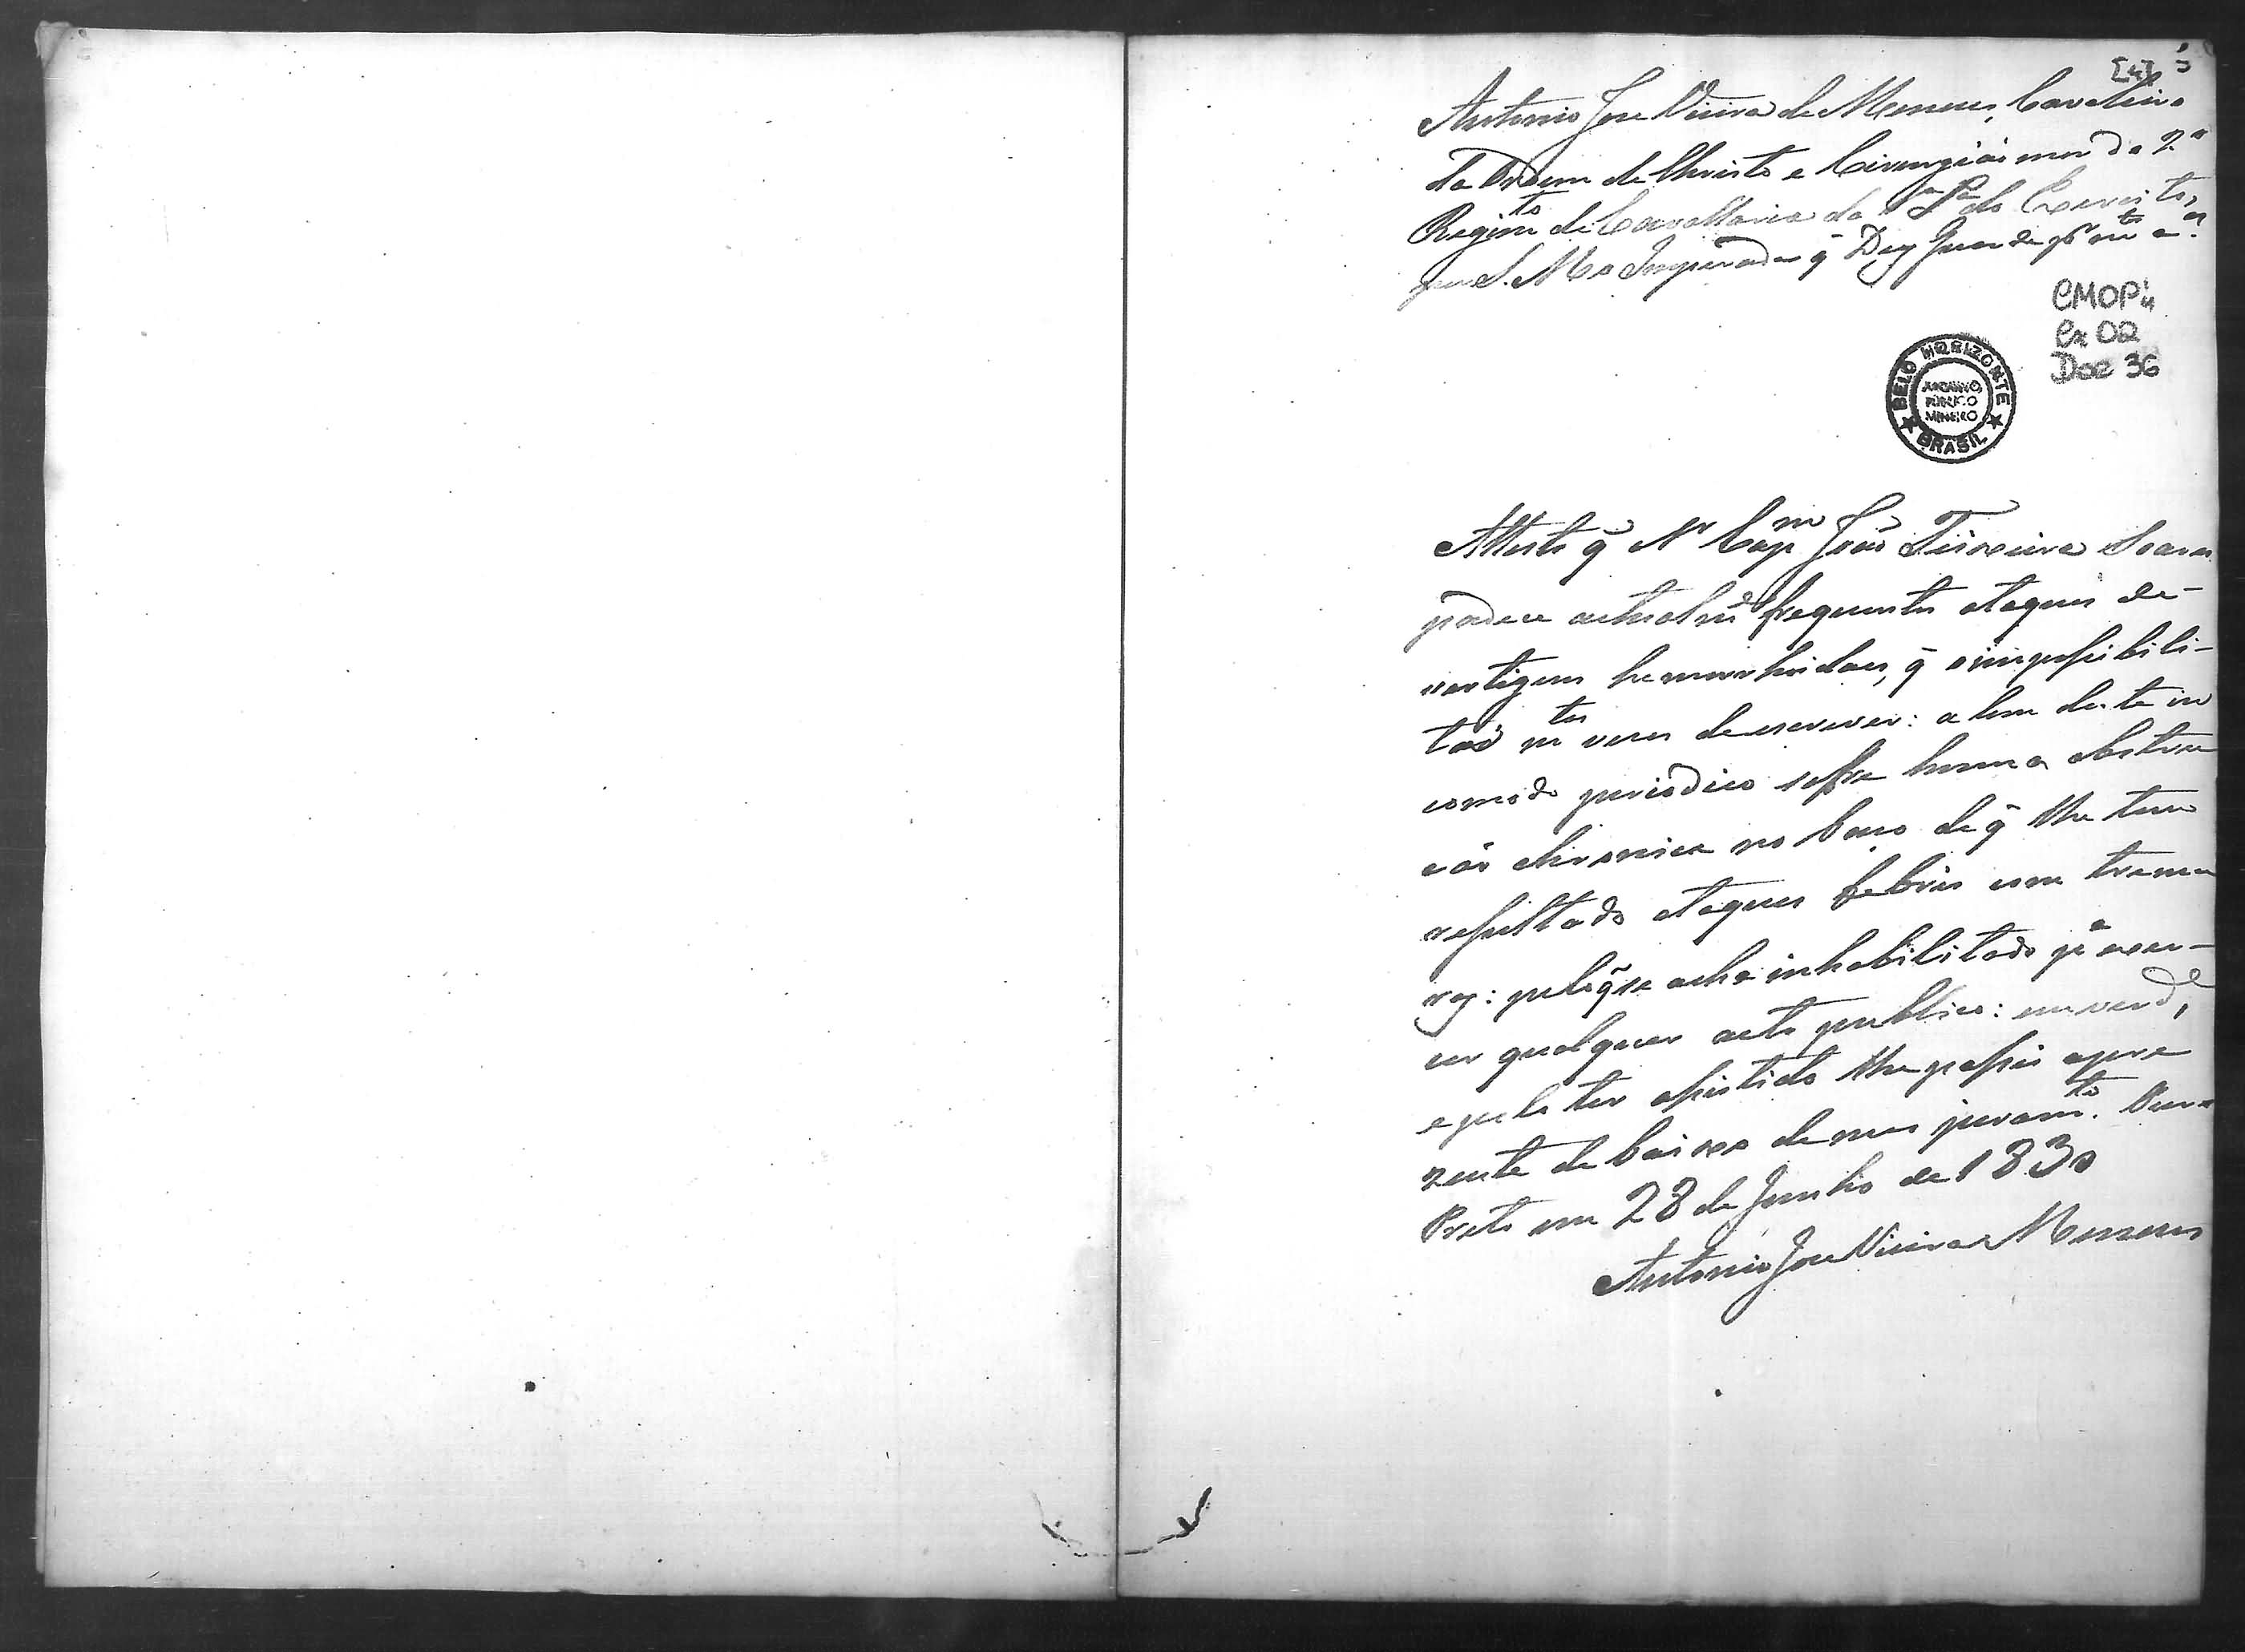 [4] 5
Antonio Jose Vieira de Menezes, Cavaleiro
da Ordem de Christo e Cirurgião mor do 2º
Regimto de Cavallaria da 1ª Lª do Exercito,
por S. M. o Imperador q̃ Ds Guarde pr mtos ans
CMOP 4
Cx 02
Doc 36
BELO HORIZONTE
ARQUIVO
PÚBLICO
MINEIRO
BRASIL
Attesto q̃ o Sr Capm João Teixeira Soares
padece actualme frequentes ataques de
vertigens hemorrhoidaes, q̃ o impossibili-
tão mtas vezes de escrever: alem deste in
comodo periodico soffre huma obstruc
ção chronica no baço de q̃ lhe tem
resultado ataques febris com tremo
res: pelo q̃ se acha inhabilitado pa exer-
cer qualquer acto publico: em verde,
e pelo ter assistido lhe passei o pre
zente debaixo de meu juramto. Ouro
Preto em 28 de Junho de 1830
Antonio Jose Vieira de Menezes